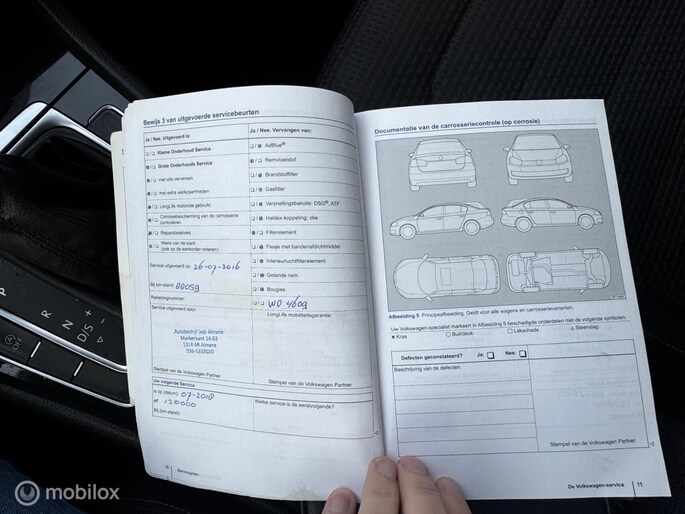 Bewijs 3 van uitgevoerde servicebeurten
Ja / Nee. Uitgevoerd is:
Kleine Onderhoud Service
Grote Onderhouds Service
met olie verversen
met extra werkzaamheden
LongLife motorolie gebruikt
Corrosiebescherming van de carrosserie
controleren
Reparatieadvies
Wens van de klant
(ook op de werkorder noteren)
Service uitgevoerd op: 26-07-2016
Bij km-stand:
Service uitgevoerd door:
Autobedrijf Job Almere
Markerkant 14-03
1314 AR Almere
Stempel van de Volkswagen Partner
Uw volgende Service
is op (datum): 07-2018
of 120000
(bij km-stand):
Ja / Nee. Vervangen van:
AdBlue®
Remvloeistof
Brandstoffilter
Gasfilter
Versnellingsbakolie: DSG®, ATF
Haldex-koppeling: olie
Filterelement
Flesje met bandenafdichtmiddel
Interieurluchtfilterelement
Getande riem
Bougies
WO 4609
LongLife mobiliteitsgarantie:
Stempel van de Volkswagen Partner
Welke service is de eerstvolgende?
Serviceplan
Documentatie van de carrosseriecontrole (op corrosie)
Afbeelding 5 Principeafbeelding. Geldt voor alle wagens en carrosserievarianten.
Uw Volkswagen-specialist markeert in Afbeelding 5 beschadigde onderdelen met de volgende symbolen:
Kras Buil/deuk Lakschade Steenslag
Defecten geconstateerd? Ja: Nee:
Beschrijving van de defecten:
Stempel van de Volkswagen Partner
De Volkswagen-service 11
R
N
D/S
+
−
OFF
mobilox